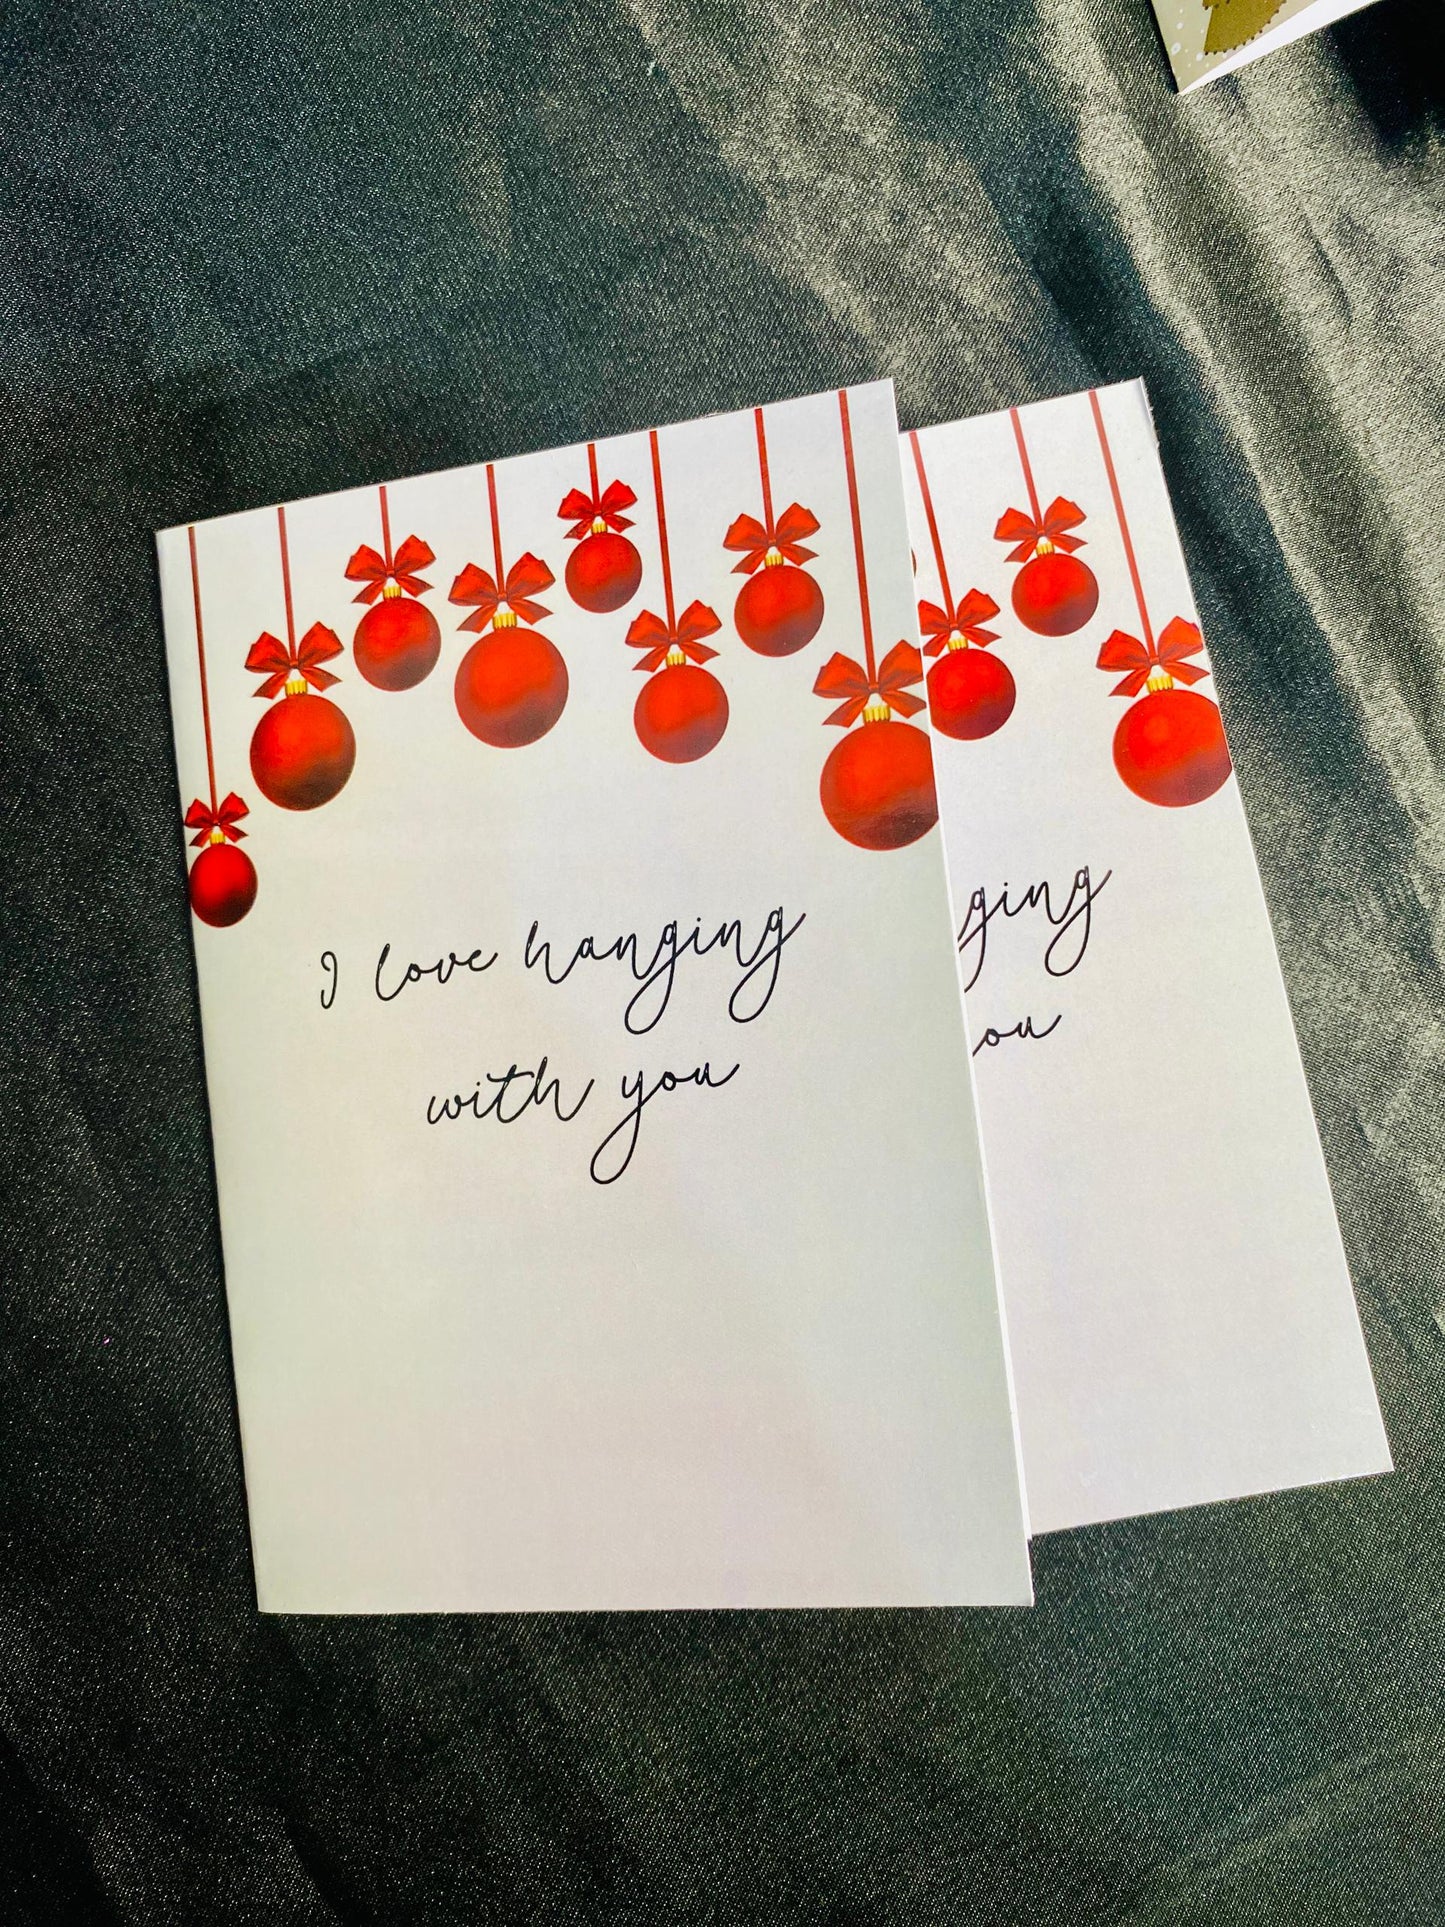 I love hanging
with you
ging
ou